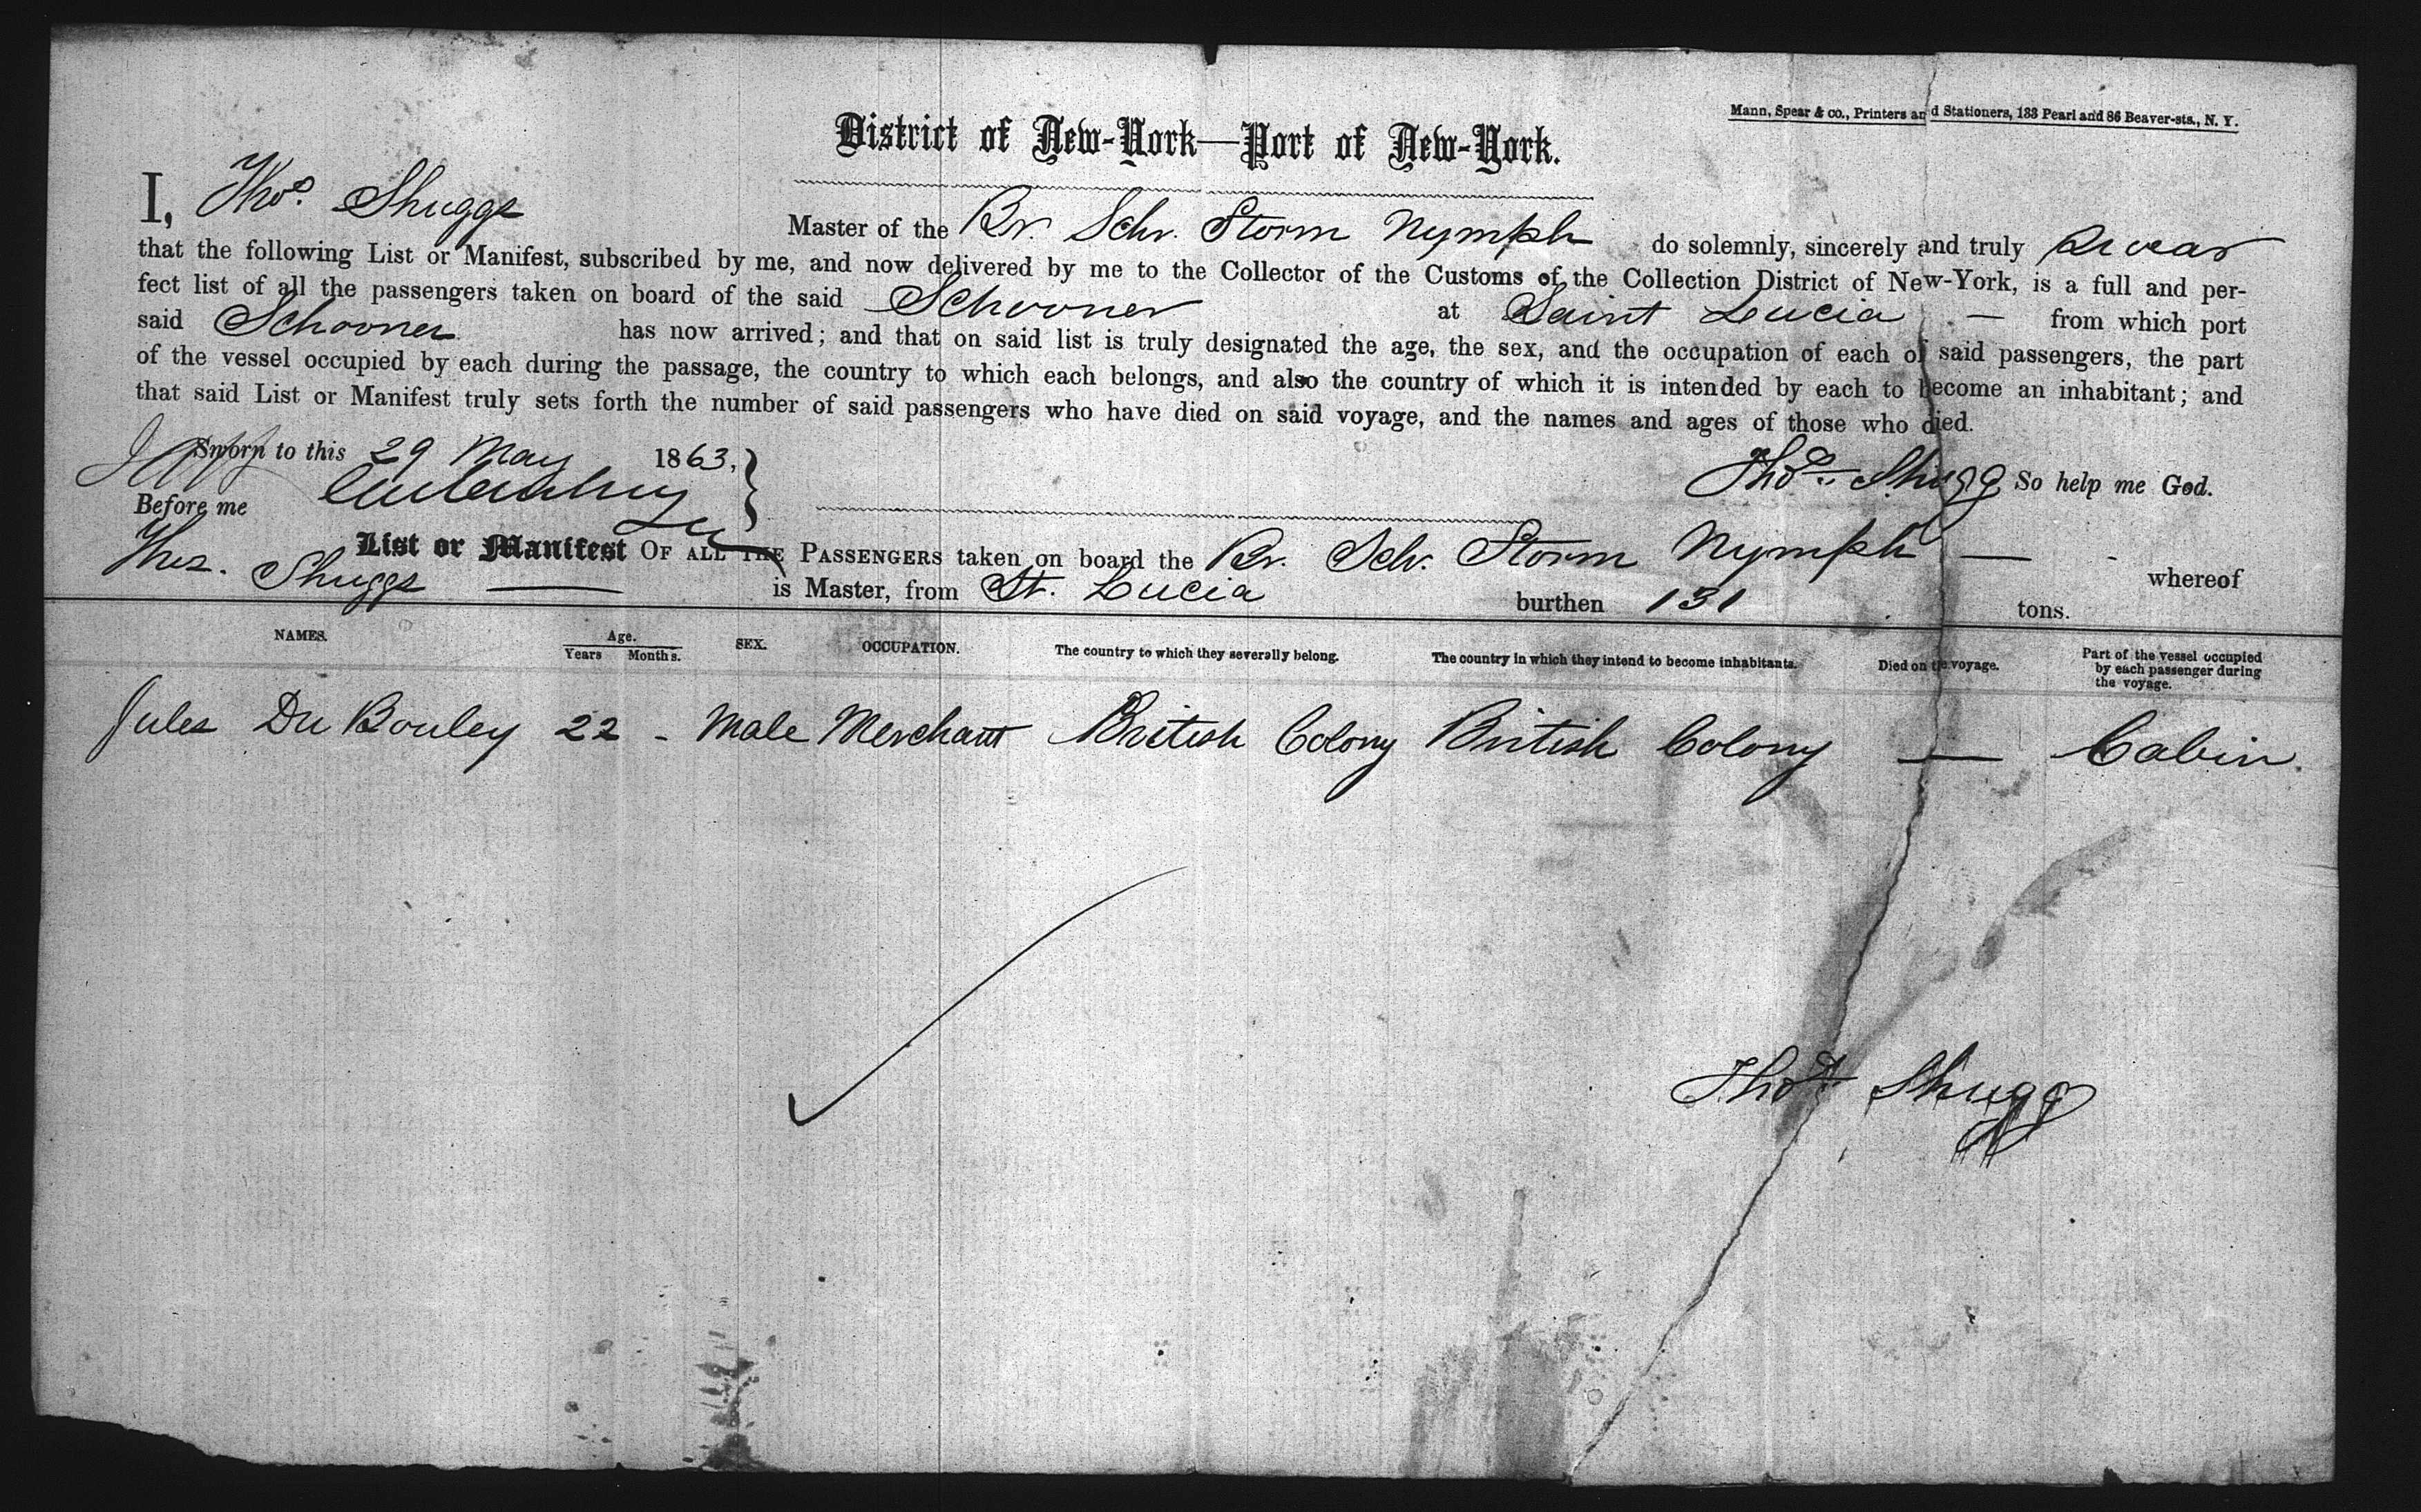 Mann, Spear & co., Printers and Stationers, 133 Pearl and 86 Beaver-sts., N. Y.
District of New-York—Port of New-York.
I, Thos. Shuggs Master of the Br. Schr. Storm Nymph do solemnly, sincerely and truly swear
that the following List or Manifest, subscribed by me, and now delivered by me to the Collector of the Customs of the Collection District of New-York, is a full and per-
fect list of all the passengers taken on board of the said Schooner at Saint Lucia — from which port
said Schooner has now arrived; and that on said list is truly designated the age, the sex, and the occupation of each of said passengers, the part
of the vessel occupied by each during the passage, the country to which each belongs, and also the country of which it is intended by each to become an inhabitant; and
that said List or Manifest truly sets forth the number of said passengers who have died on said voyage, and the names and ages of those who died.
Sworn to this 29 May 1863,
Thos. Shugg So help me God.
Before me
List or Manifest OF ALL THE PASSENGERS taken on board the Br. Schr. Storm Nymph — whereof
Thos. Shuggs — is Master, from St. Lucia burthen 131 tons.
NAMES. Age. Years Months. SEX. OCCUPATION. The country to which they severally belong. The country in which they intend to become inhabitants. Died on the voyage. Part of the vessel occupied by each passenger during the voyage.
Jules Du Bouley 22 - Male Merchant British Colony British Colony — Cabin.
Thos. Shugg